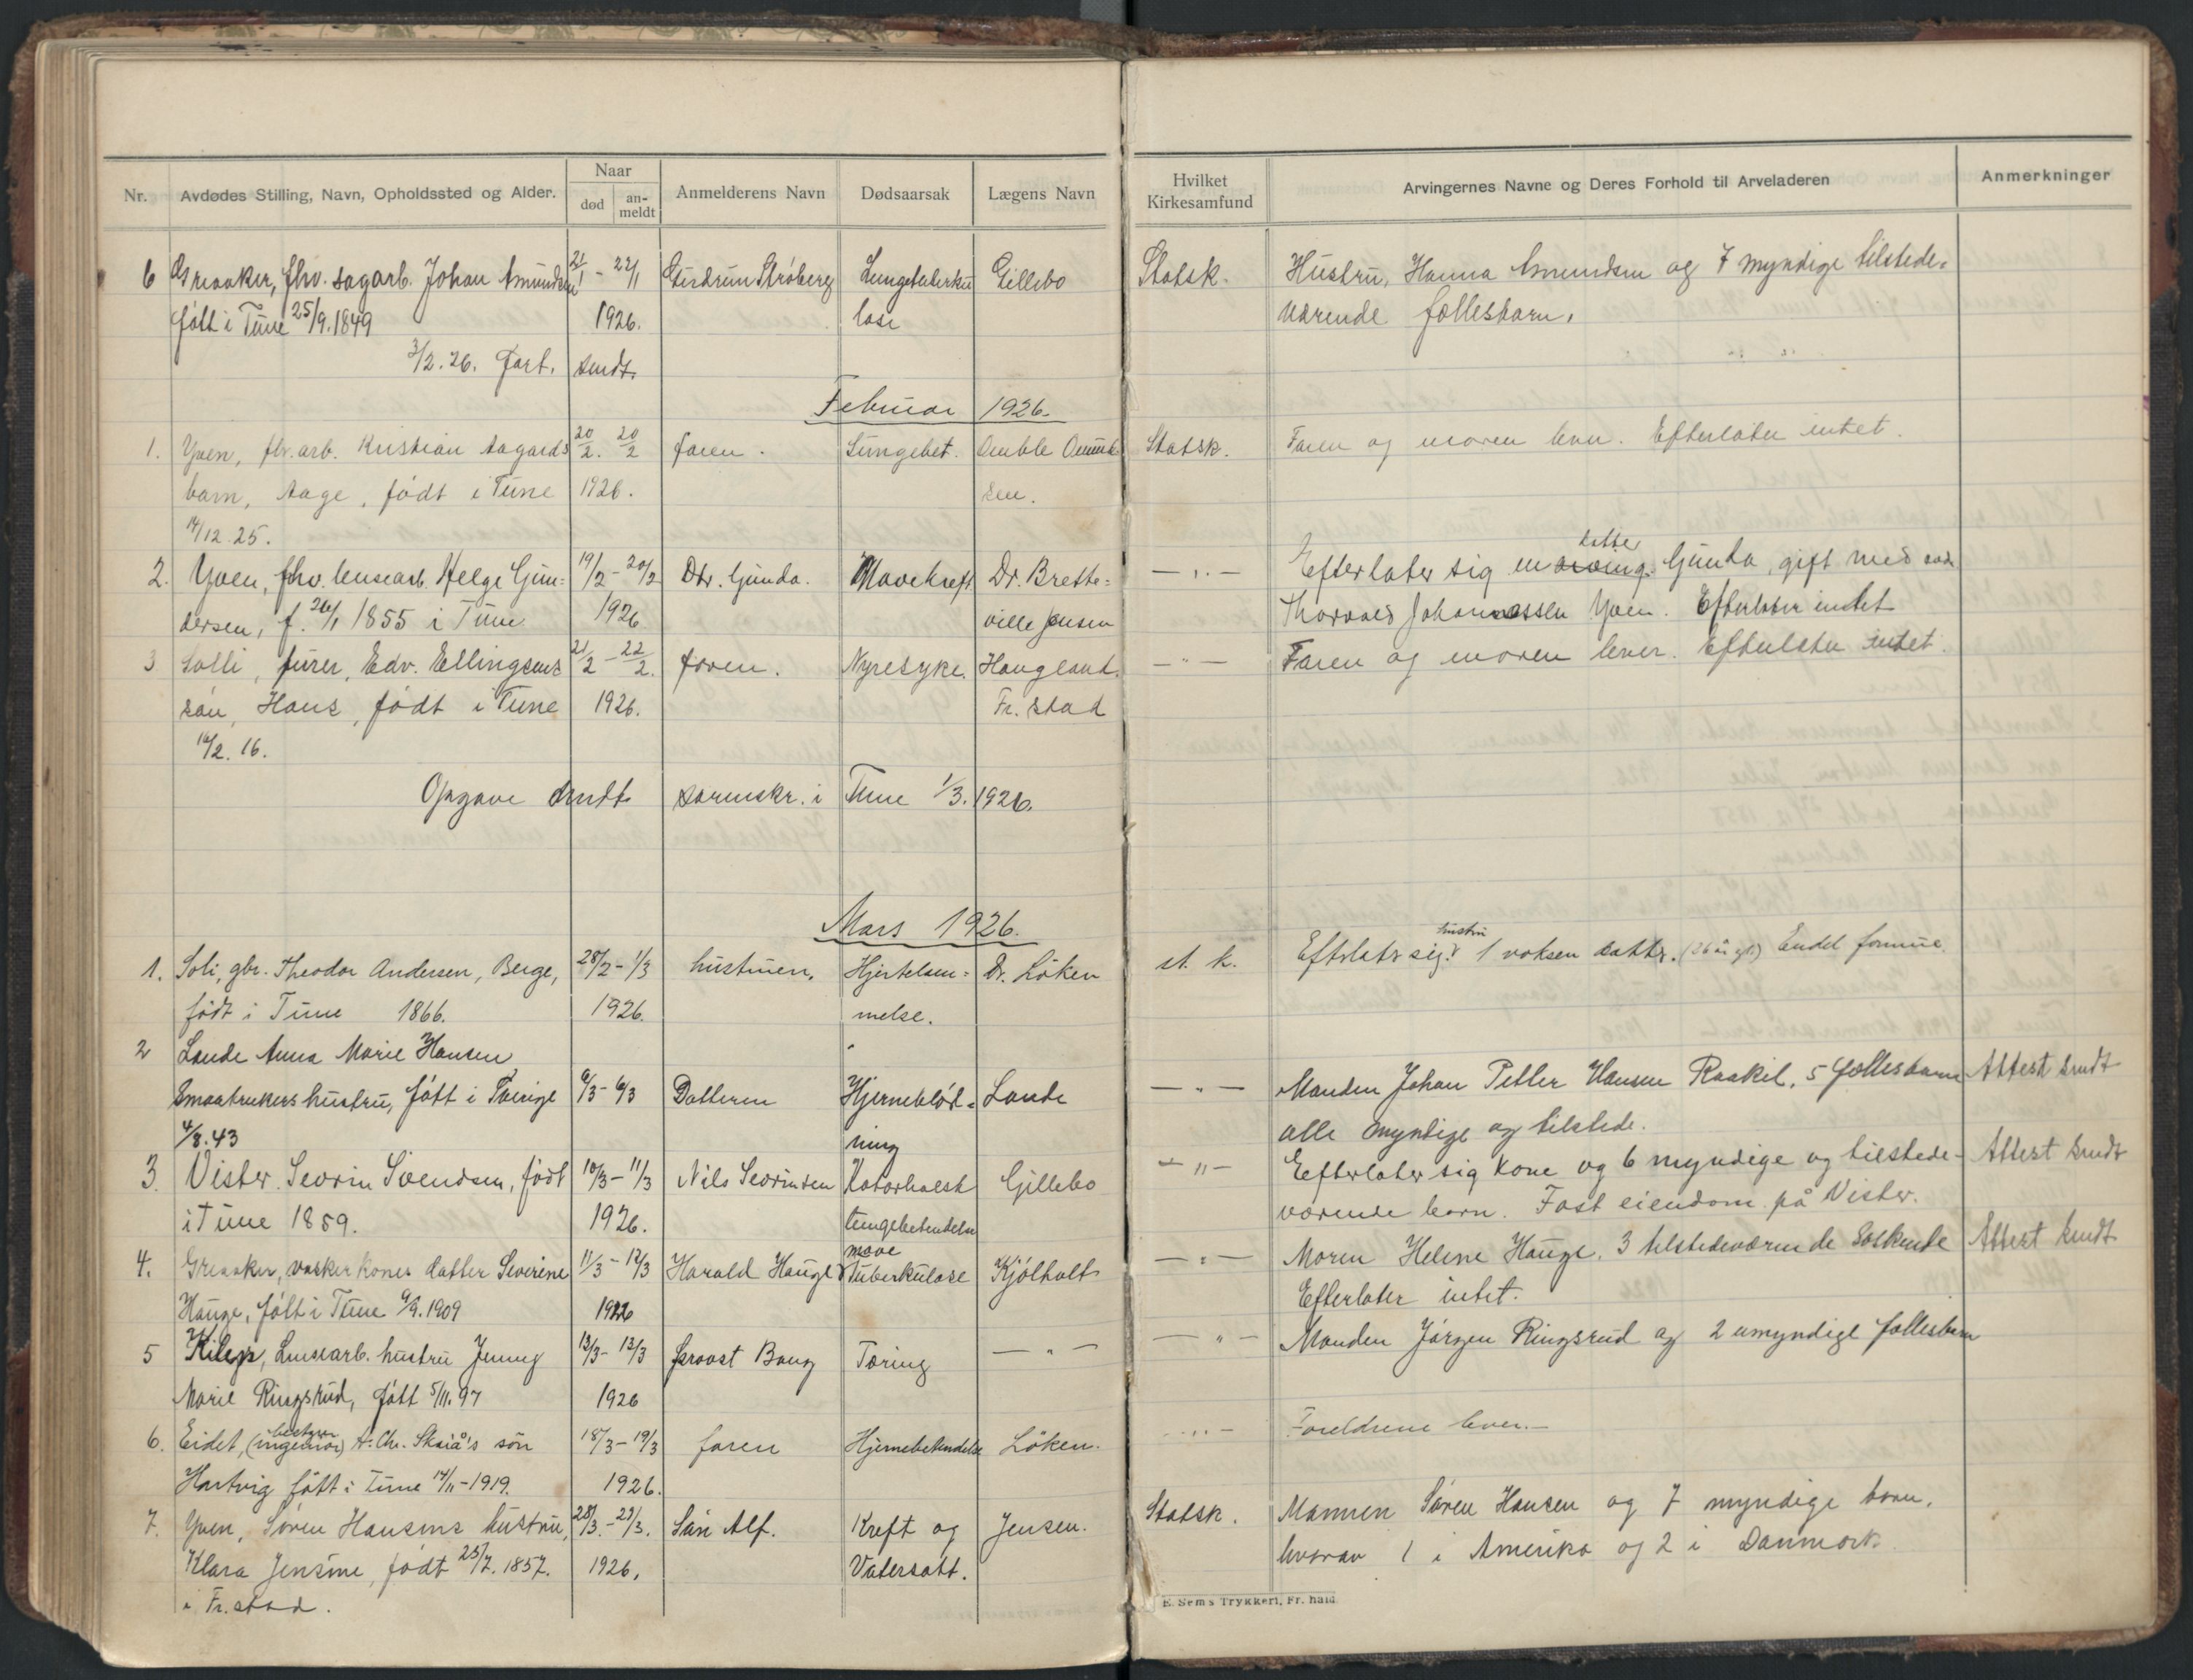 Nr. Avdødes Stilling, Navn, Opholdssted og Alder. Naar død an-meldt Anmelderens Navn Dødsaarsak Lægens Navn Hvilket Kirkesamfund Arvingernes Navne og Deres Forhold til Arveladeren Anmerkninger
6 Greaaker, fhv. sagarb. Johan Amundsen 21/1 - 22/1 Gudrun Strøberg Lungetuberku Gillebo Statsk. Hustru, Hanna Amundsen og 7 myndige tilstede=
født i Tune 25/9.1849 1926. lose værende fællesbarn.
3/2.26. Fort. sendt.
Februar 1926.
1. Yven, fbr.arb. Kristian Aagards 20/2. 20/2 faren. Lungebet. Omble Omund Statsk. Faren og moren lever. Efterlater intet.
barn, Aage, født i Tune 1926. sen.
14/12.25.
2. Yven, fhv. lensearb. Helge Gun= 19/2 - 20/2 Dtr. Gunda. Mavekreft Dr. Brette= — „ — Efterlater sig en arving. datter Gunda, gift med
dersen, f. 26/1 1855 i Tune 1926 ville Jensen Thorvald Johannessen Yven. Efterlater intet
3 Solli, furer, Edv. Ellingsens 21/2 - 22/2. faren. Nyresyke. Haugland. — „ — Faren og moren lever. Efterlater intet.
søn, Hans, født i Tune 1926. Fr.stad
16/2.16.
Opgave sendt sorenskr. i Tune 1/3.1926.
Mars 1926.
1. Soli, gbr. Theodor Andersen, Berge, 28/2 - 1/3 hustruen. Hjertelam= Dr. Løken st. k. Efterlater sig hustru 1 voksen datter. (26 år gl.) Endel formue.
født i Tune 1866. 1926. melse.
2 Lande Anna Marie Hansen
Smaabrukers hustru, født i Sverige 6/3 - 6/3 Datteren Hjerneblød= Lande — „ — Manden Johan Petter Hansen Raakil, 5 fællesbarn Attest sendt
4/8.43 ning alle myndige og tilstede.
3. Vister. Sevrin Svendsen, født 10/3 - 11/3 Nils Sevrinsen Katarhalsk Gillebo — „ — Eefterlater sig kone og 6 myndige og tilstede- Attest sendt
i Tune 1859. 1926. lungebetendelse værende barn. Fast eiendom på Vister.
4. Greaaker, vaskerkones datter Severine 11/3 - 12/3 Harald Hauge mave Tuberkulose Kjølholt — „ — Moren Helene Hauge. 3 tilstedeværende Søskende Attest sendt
Hauge, født i Tune 9/9.1909 1926 Efterlater intet.
5 Kilep, Lensearb. hustru Jenny 13/3 - 13/3 provst Bang Tæring — „ — — „ — Manden Jørgen Ringsrud og 2 umyndige fællesbarn
Marie Ringsrud, født 5/11.97 1926
6. Eidet, (ingeniør) bestyrer A. Chr. Skaiå's søn 18/3 - 19/3 faren Hjernebetendelse Løken. — „ — Foreldrene lever. —
Hartvig født i Tune 14/11-1919. 1926.
7. Yven, Søren Hansens hustru, 28/3. - 29/3. Søn Alf. Kreft og Jensen. Statsk. Mannen Søren Hansen og 7 myndige barn,
Klara Jensine, født 25/7. 1857. 1926. Vatersott. hvorav 1 i Amerika og 2 i Danmark.
i Fr.stad.
E. Sems Trykkeri, Fr.hald